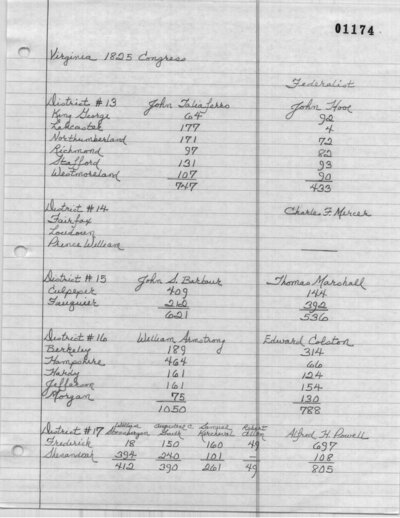 01174
Virginia 1825 Congress
Federalist
District #13 John Taliaferro John Hooe
King George 64 92
Lancaster 177 4
Northumberland 171 72
Richmond 97 82
Stafford 131 93
Westmoreland 107 90
747 433
District #14 Charles F. Mercer
Fairfax
Loudoun
Prince William
District #15 John S. Barbour Thomas Marshall
Culpeper 409 144
Fauquier 212 392
621 536
District #16 William Armstrong Edward Colston
Berkeley 189 314
Hampshire 464 66
Hardy 161 124
Jefferson 161 154
Morgan 75 130
1050 788
District #17 William Augustine C. Smith Samuel Kercheval Robert Allen Alfred H. Powell
Frederick 18 150 160 49 697
Shenandoah 394 240 101 — 108
412 390 261 49 805